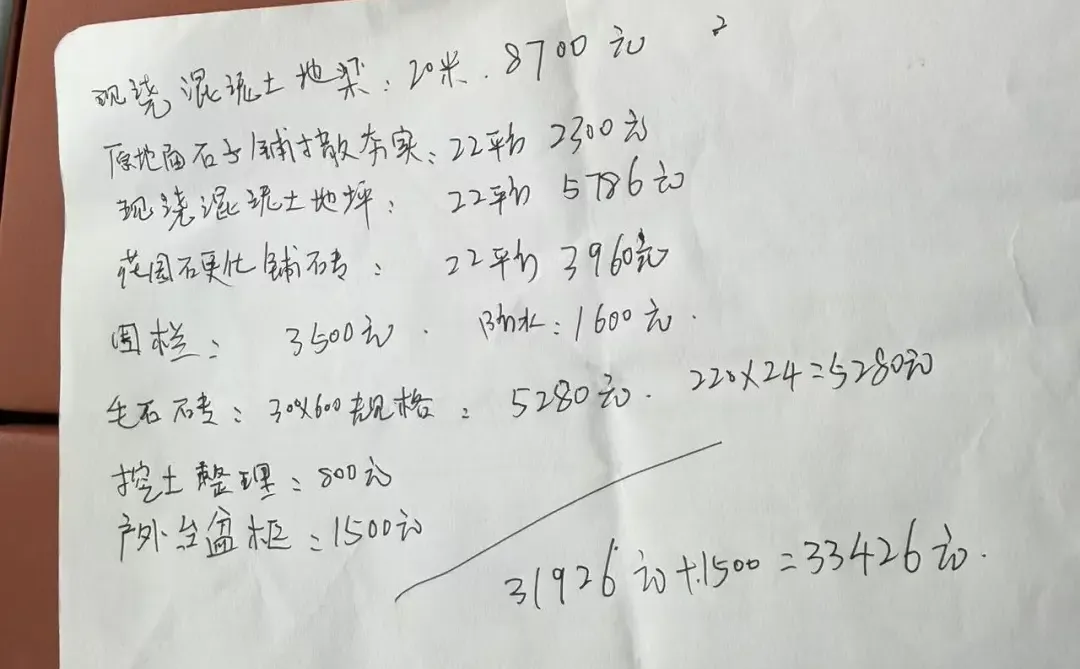 2
现浇混泥土地梁：20米．8700元
原地面石子铺撒夯实：22平方 2300元
现浇混泥土地坪：22平方 5786元
花园硬化铺砖：22平方 3960元
围栏：3500元．防水：1600元．
毛石砖：300X600规格：5280元．220X24=5280元
挖土整理：800元
户外台盆柜：1500元
31926元+1500=33426元．